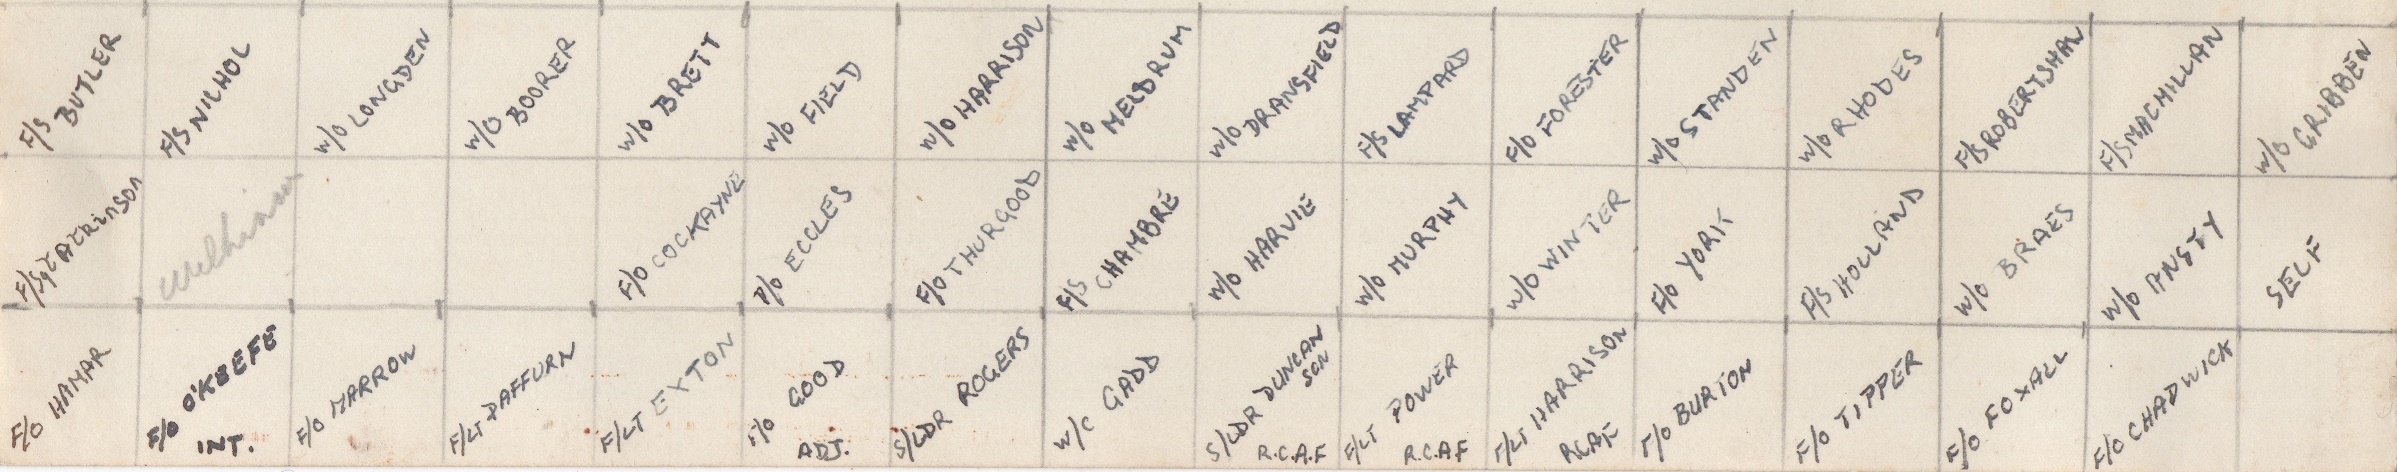 F/S BUTLER
F/S NICHOL
W/O LONGDEN
W/O BOORER
W/O BRETT
W/O FIELD
W/O HARRISON
W/O MELDRUM
W/O DRANSFIELD
F/S LAMPARD
F/O FORESTER
W/O STANDEN
W/O RHODES
F/S ROBERTSHAW
F/S MACMILLAN
W/O GRIBBEN
F/Sgt Atkinson
F/O COCKAYNE
P/O ECCLES
F/O THURGOOD
F/S CHAMBRÉ
W/O HARVIE
W/O MURPHY
W/O WINTER
F/O YORK
F/S HOLLAND
W/O BRAES
W/O ANSTY
SELF
F/O HAMAR
F/O O'KEEFE
INT.
F/O MARROW
F/LT DAFFURN
F/LT EXTON
F/O GOOD
ADJ.
S/LDR ROGERS
W/C GADD
S/LDR DUNCAN
SON
R.C.A.F
F/LT POWER
R.C.A.F
F/LT HARRISON
RCAF
F/O BURTON
F/O TIPPER
F/O FOXALL
F/O CHADWICK